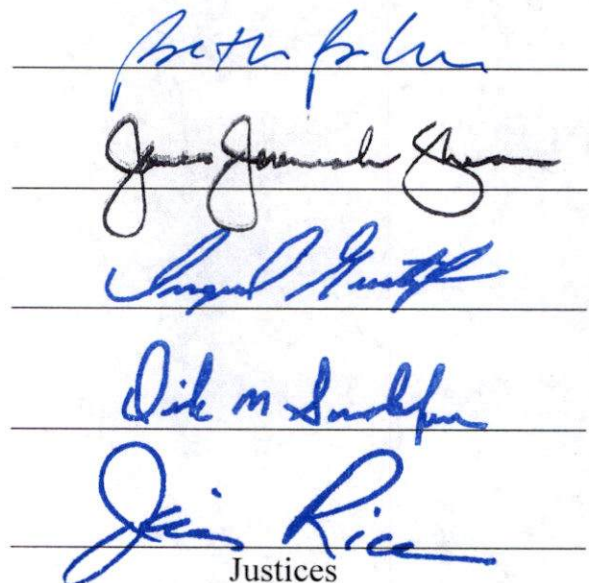 Beth Baker
James Jeremiah Shea
Ingrid Gustafson
Dirk M Sandefur
Jim Rice
Justices